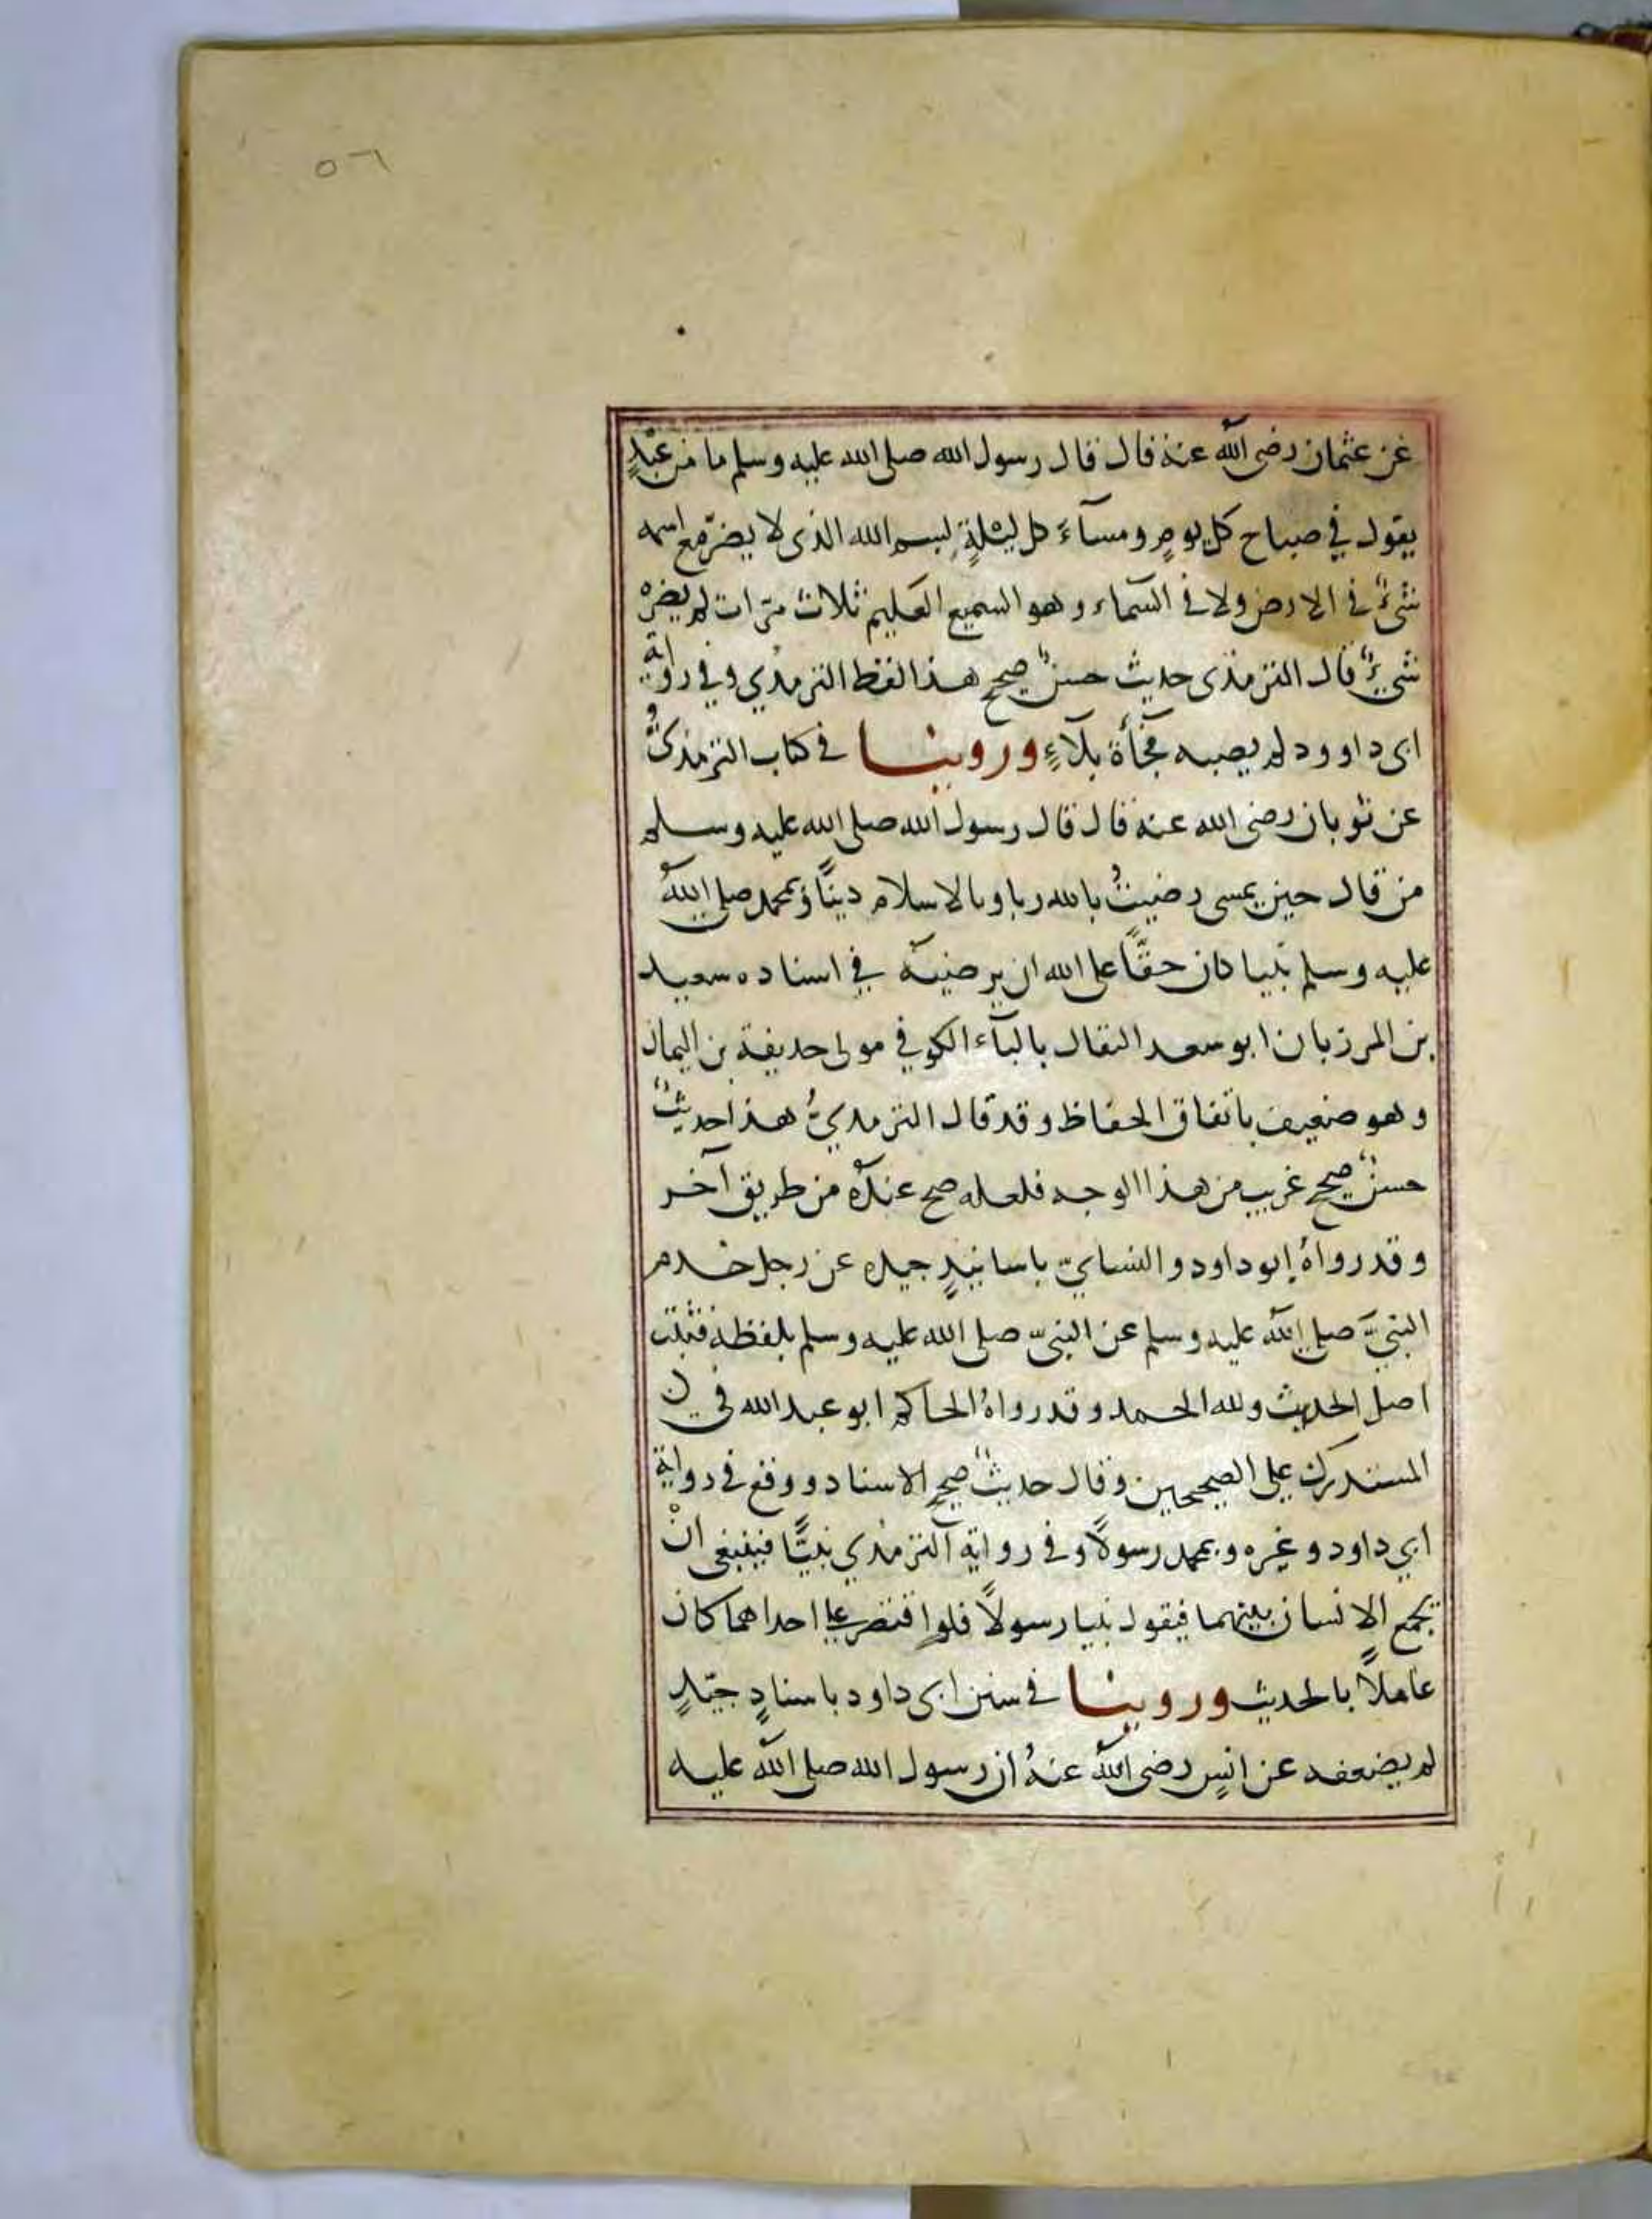 ٥٦
عن عثمان رضى الله عنه قال قال رسول الله صلى الله عليه وسلم ما من عبدٍ
يقول في صباح كل يومٍ ومسآءَ كل ليلةٍ بسم الله الذى لا يضرّ مع اسمه
شئٌ في الارض ولا في السّماء وهو السميع العليم ثلاث مرّات لم يضرّه
شئٌ قال الترمذى حديث حسنٌ صحيح هذا لفظ الترمذي وفي رواية
ابى داوود لم يصبه فجأة بلآءٍ وروينا في كتاب الترمذىّ
عن ثوبان رضى الله عنه قال قال رسول الله صلى الله عليه وسلم
من قال حين يمسى رضيتُ بالله ربا وبالاسلام دينًا وبمحمد صلى اللهُ
عليه وسلم نبيا كان حقًّا على الله ان يرضيَه في اسناده سعيد
بن المرزبان ابو سعد البقال بالبآء الكوفي مولى حذيفة بن اليمان
وهو ضعيف باتفاق الحفاظ وقد قال الترمذيُّ هذا حديثٌ
حسنٌ صحيح غريب من هذا الوجه فلعله صح عندَهُ من طريق آخر
وقد رواهُ ابو داود والنسايّ باسانيدٍ جيده عن رجل خدم
النبيَّ صلى الله عليه وسلم عن النبىّ صلى الله عليه وسلم بلفظه فثبت
اصل الحديث ولله الحمد وقد رواهُ الحاكم ابو عبد الله في
المستدرك على الصحيحين وقال حديثٌ صحيح الاسناد ووقع في رواية
ابي داود وغيره وبمحمد رسولًا وفي رواية الترمذي نبيًّا فينبغى انْ
يجمع الانسان بينهما فيقول نبيا رسولًا فلو اقتصر على احداهما كان
عاملًا بالحديث وروينا في سنن ابى داود باسنادٍ جيّدٍ
لم يضعفه عن انسٍ رضى الله عنهُ ان رسول الله صلى الله عليه